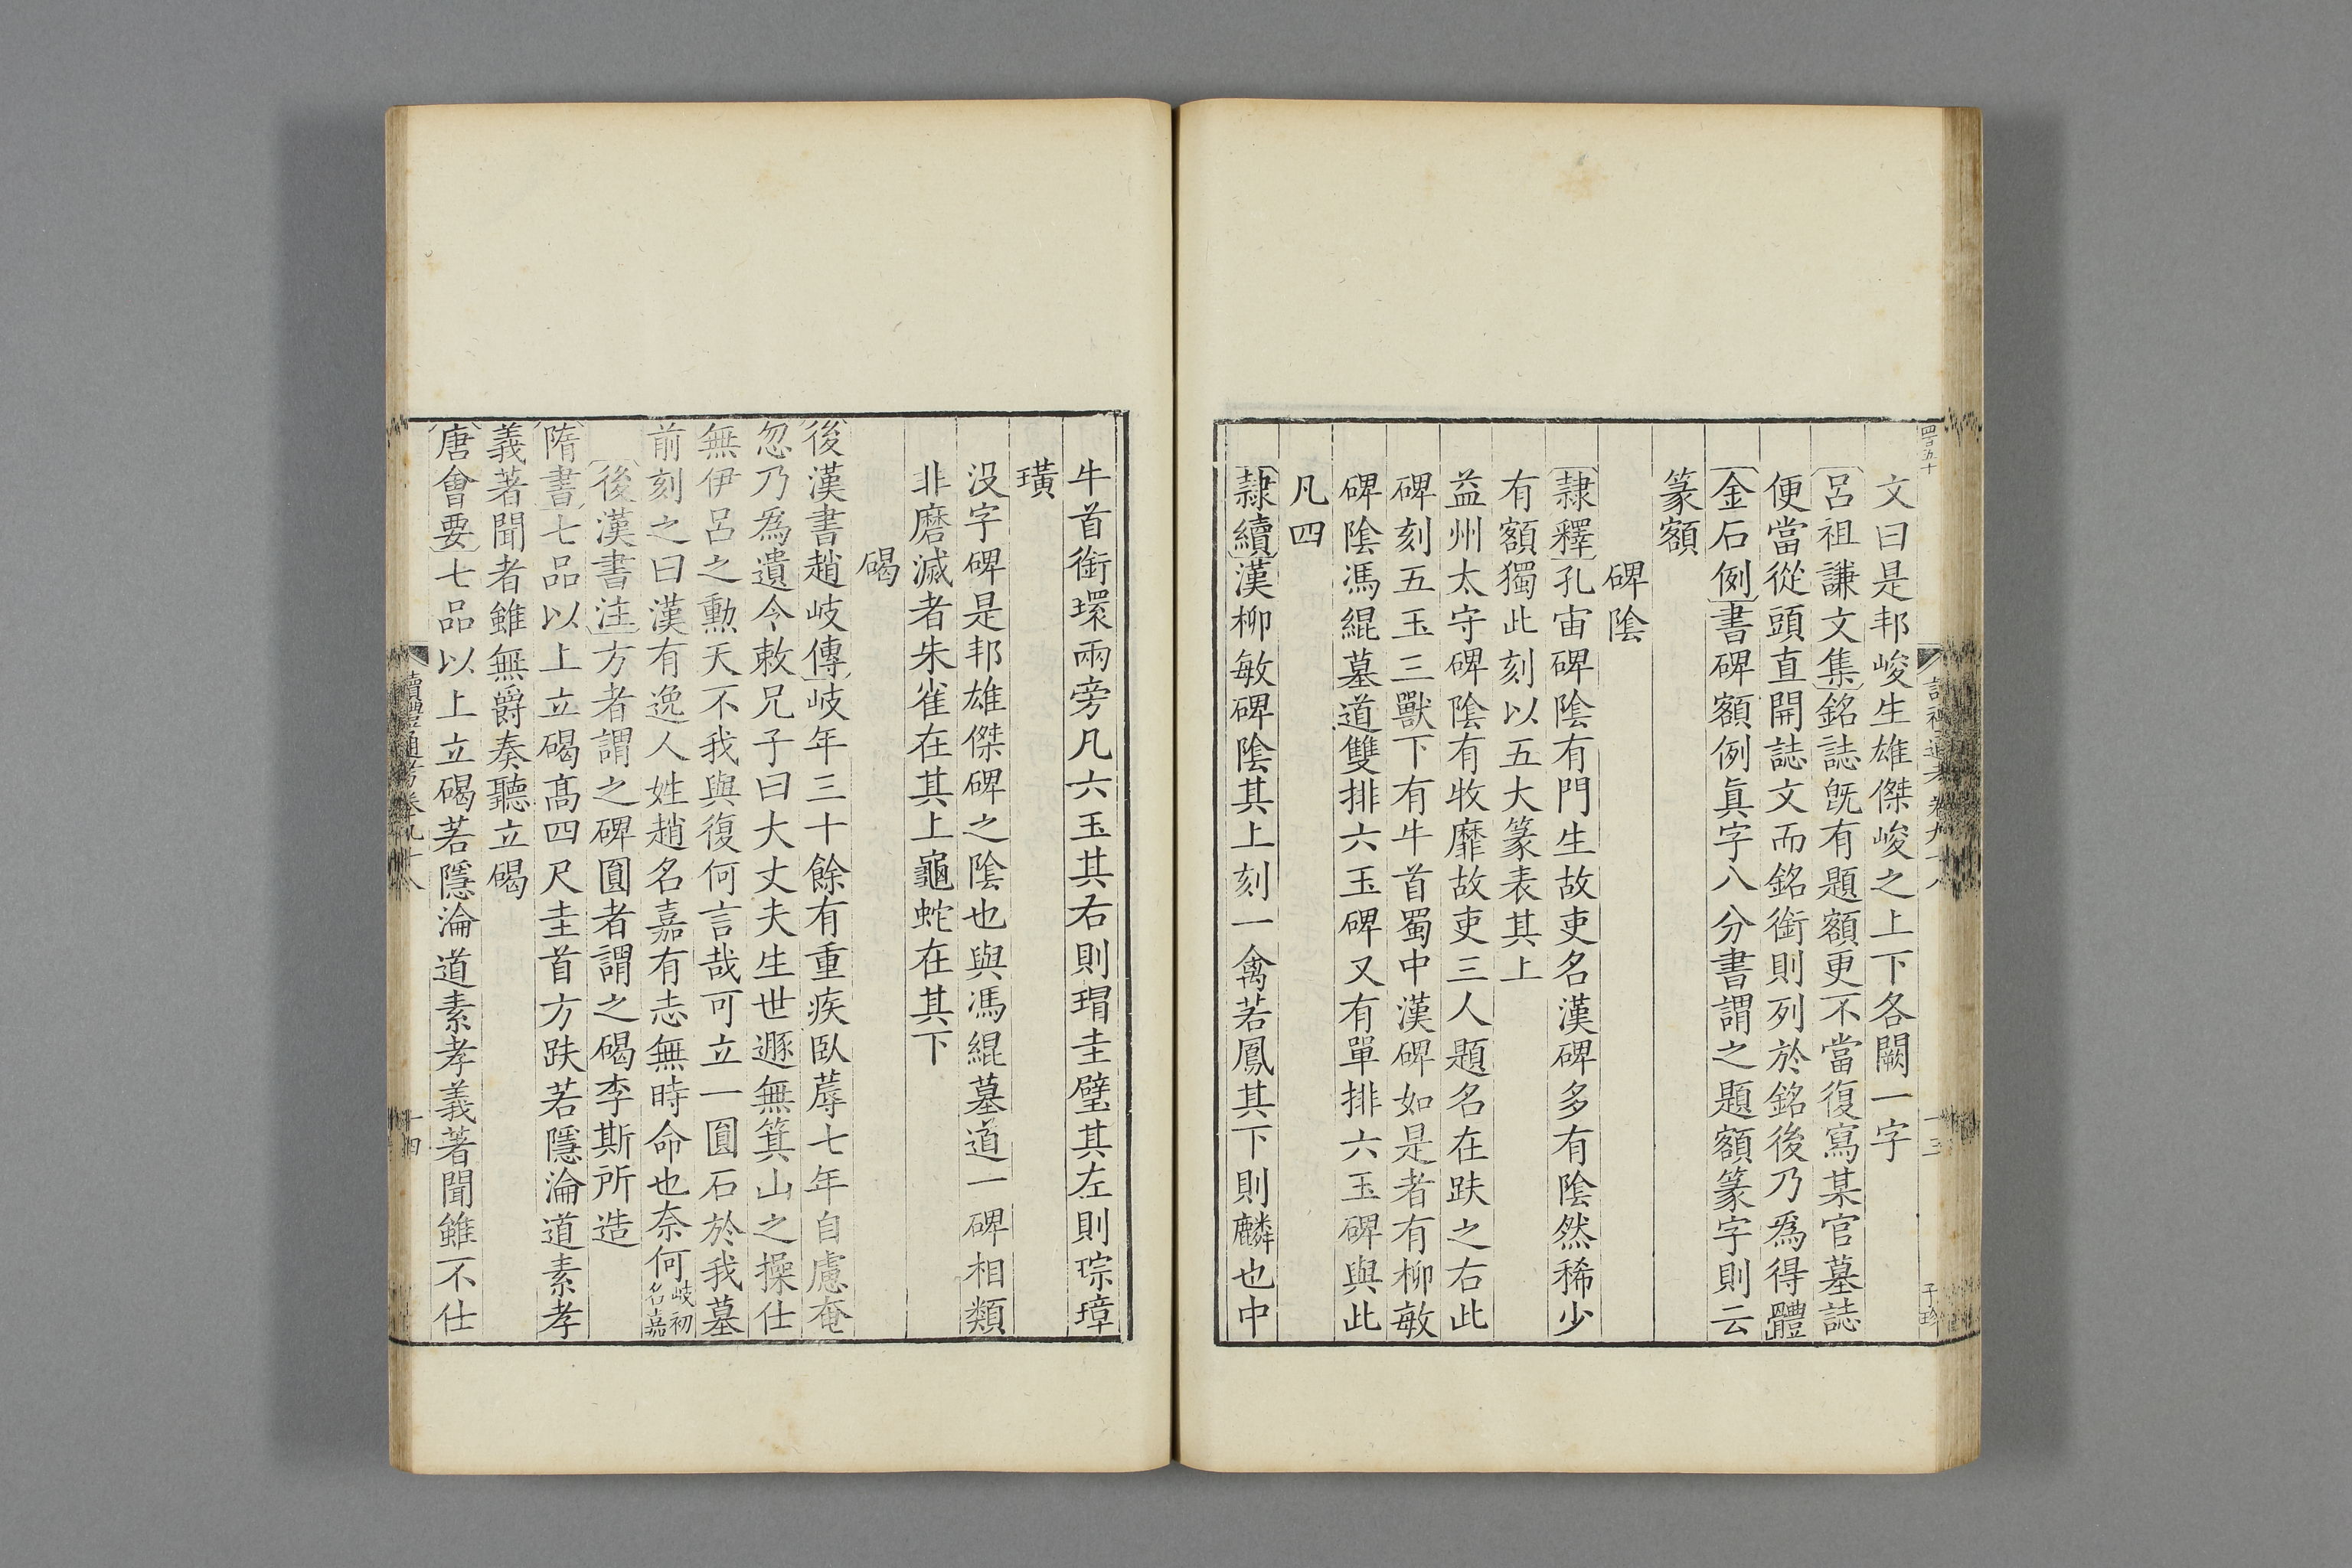 文曰是邦峻生雄傑峻之上下各闕一字
呂祖謙文集銘誌旣有題額更不當復寫某官墓誌
便當從頭直開誌文而銘銜則列於銘後乃爲得體
金石例書碑額例眞字八分書謂之題額篆字則云
篆額
碑陰
隷釋孔宙碑陰有門生故吏名漢碑多有陰然稀少
有額獨此刻以五大篆表其上
益州太守碑陰有牧靡故吏三人題名在趺之右此
碑刻五玉三獸下有牛首蜀中漢碑如是者有柳敏
碑陰馮緄墓道雙排六玉碑又有單排六玉碑與此
凡四
隷續漢柳敏碑陰其上刻一禽若鳳其下則麟也中
牛首銜環兩旁凡六玉其右則瑁圭璧其左則琮璋
璜
没字碑是邦雄傑碑之陰也與馮緄墓道一碑相類
非磨滅者朱雀在其上龜蛇在其下
碣
後漢書趙岐傳岐年三十餘有重疾臥蓐七年自慮奄
忽乃爲遺令敕兄子曰大丈夫生世遯無箕山之操仕
無伊呂之勳天不我與復何言哉可立一圓石於我墓
前刻之曰漢有逸人姓趙名嘉有志無時命也奈何岐初名嘉
後漢書注方者謂之碑圓者謂之碣李斯所造
隋書七品以上立碣高四尺圭首方趺若隱淪道素孝
義著聞者雖無爵奏聽立碣
唐會要七品以上立碣若隱淪道素孝義著聞雖不仕
讀禮通考卷九十八
十四